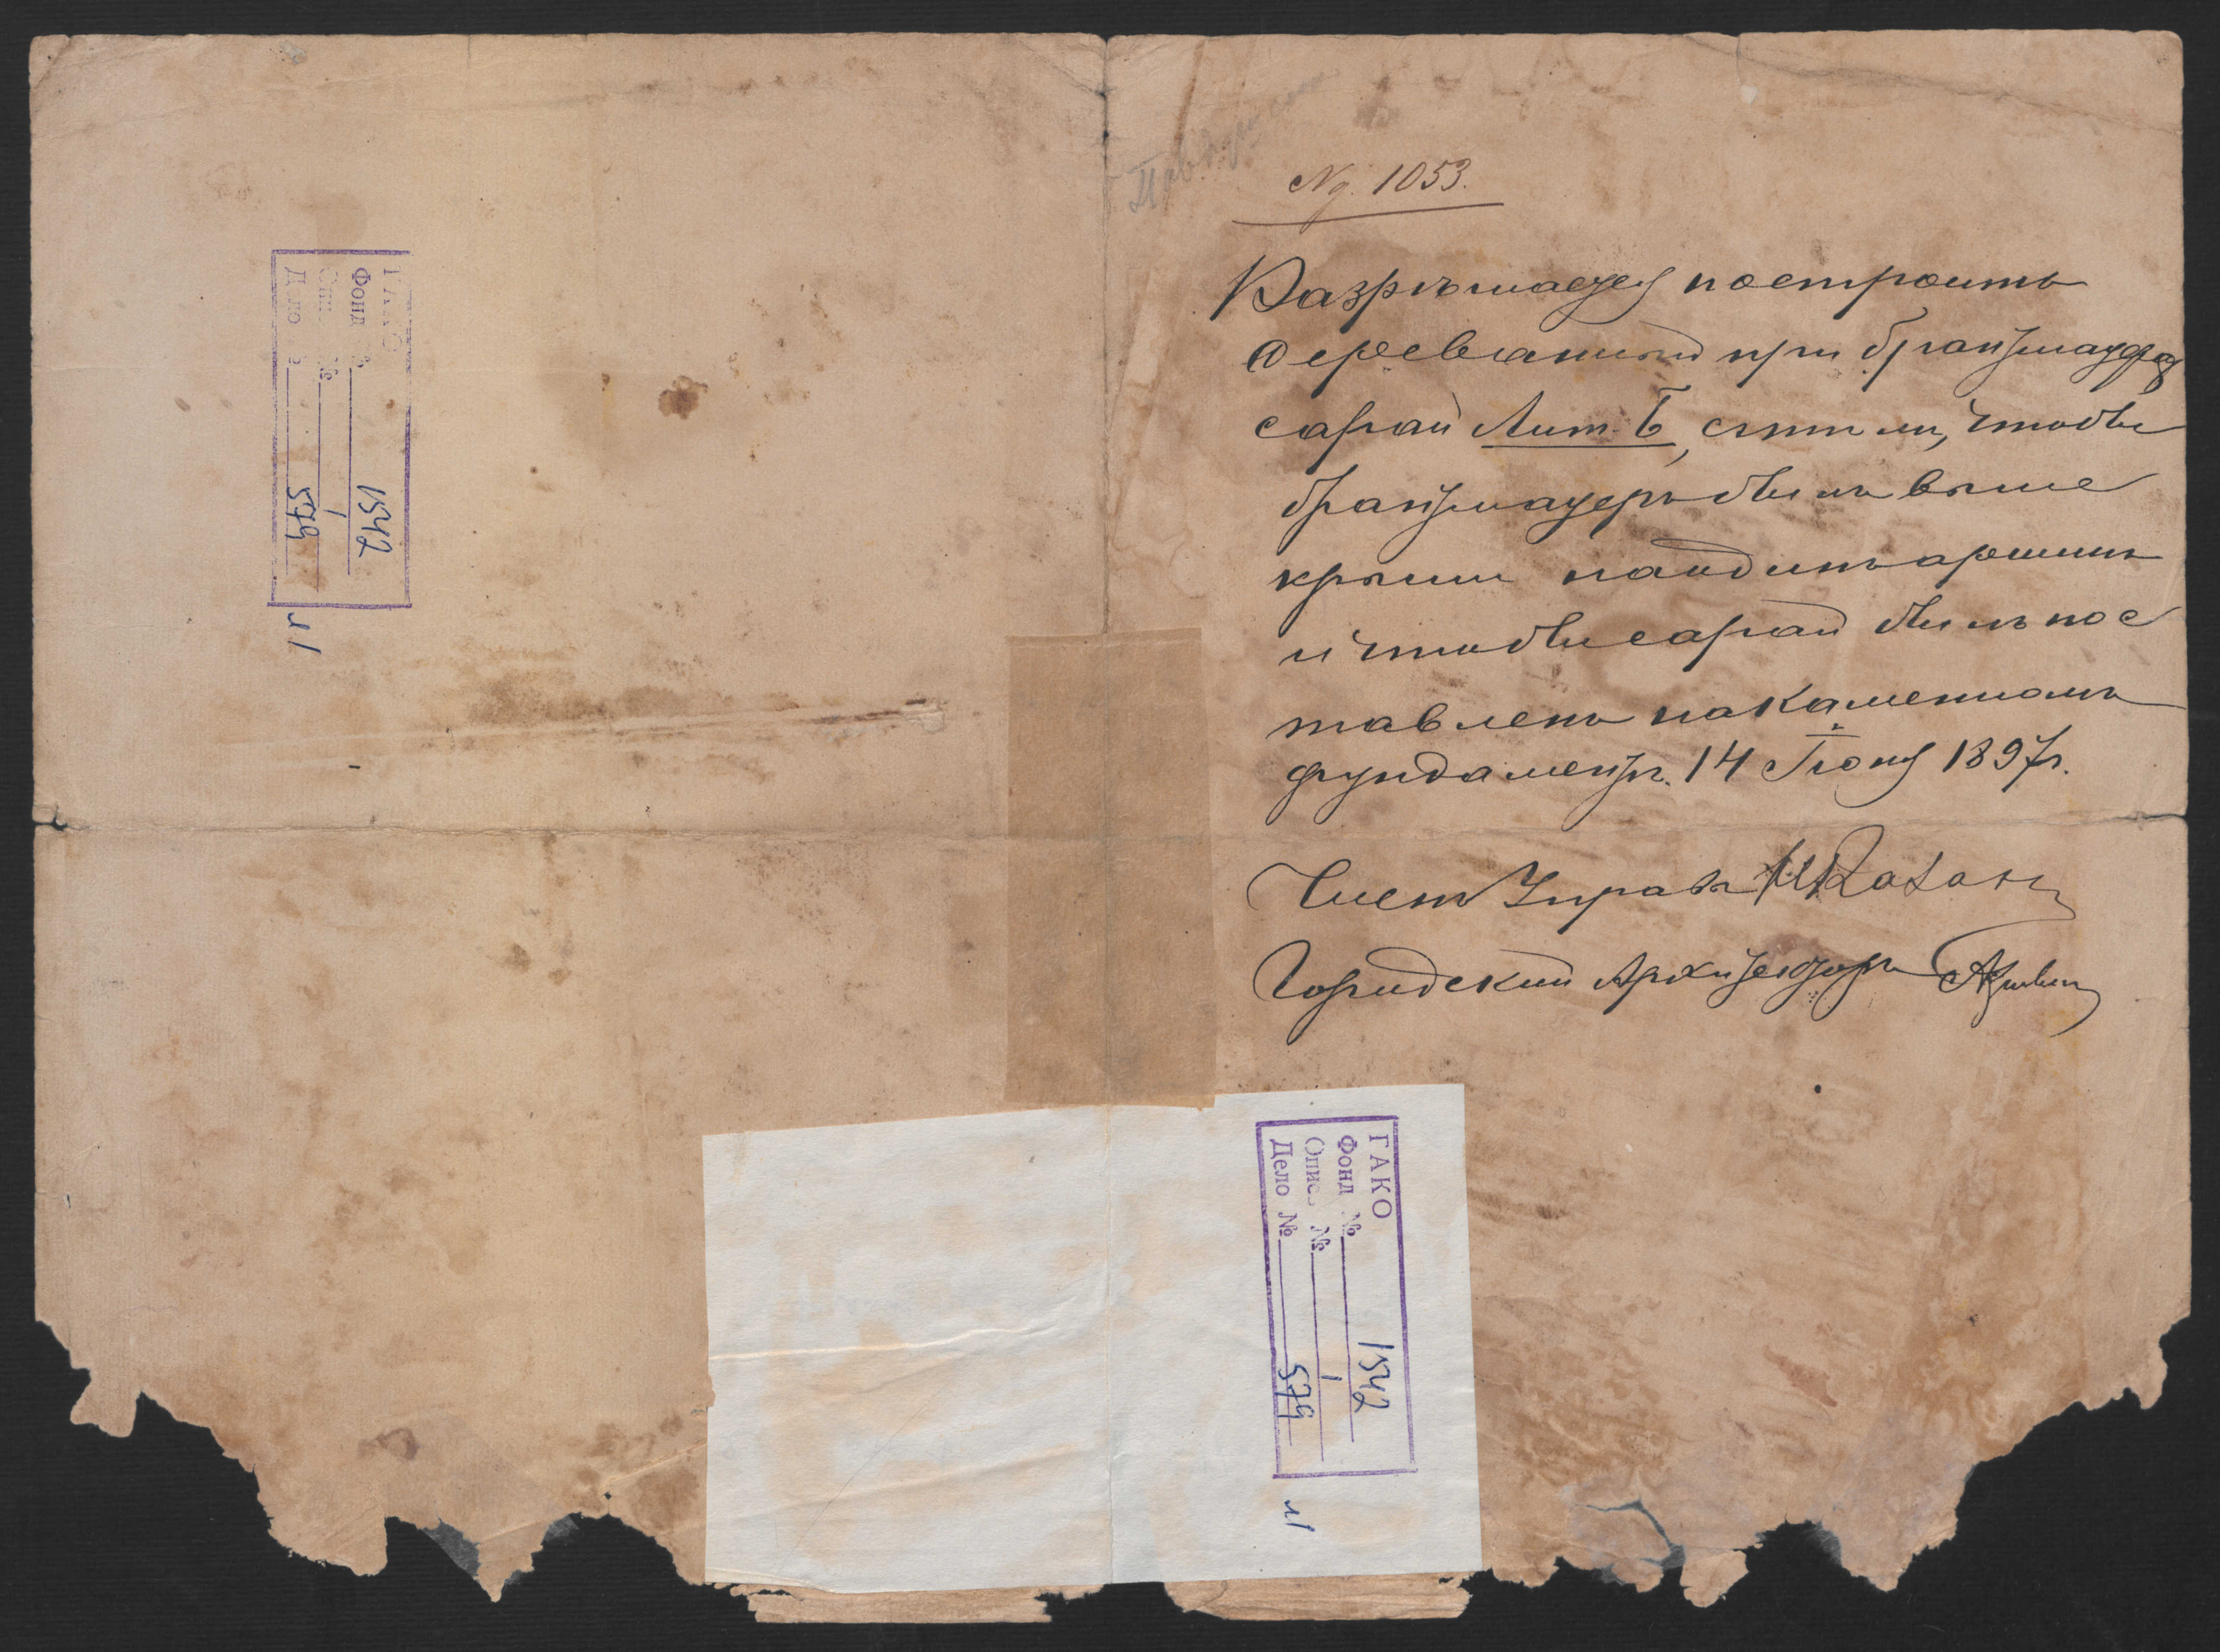 ГАКО
Фонд № 1542
Опись № 1
Дело № 579
л 1
№ 1053.
Разрѣшается построить
деревянный при брантмауерѣ
сарай Лит. Б, съ тѣмъ, чтобы
брантмауеръ былъ выше
крыши на одинъ аршинъ
и чтобы сарай былъ пос
тавленъ на каменномъ
фундаментѣ. 14 Іюня 1897 г.
Членъ Управы
Городской Архитекторъ
ГАКО
Фонд № 1542
Опись № 1
Дело № 579
л 1